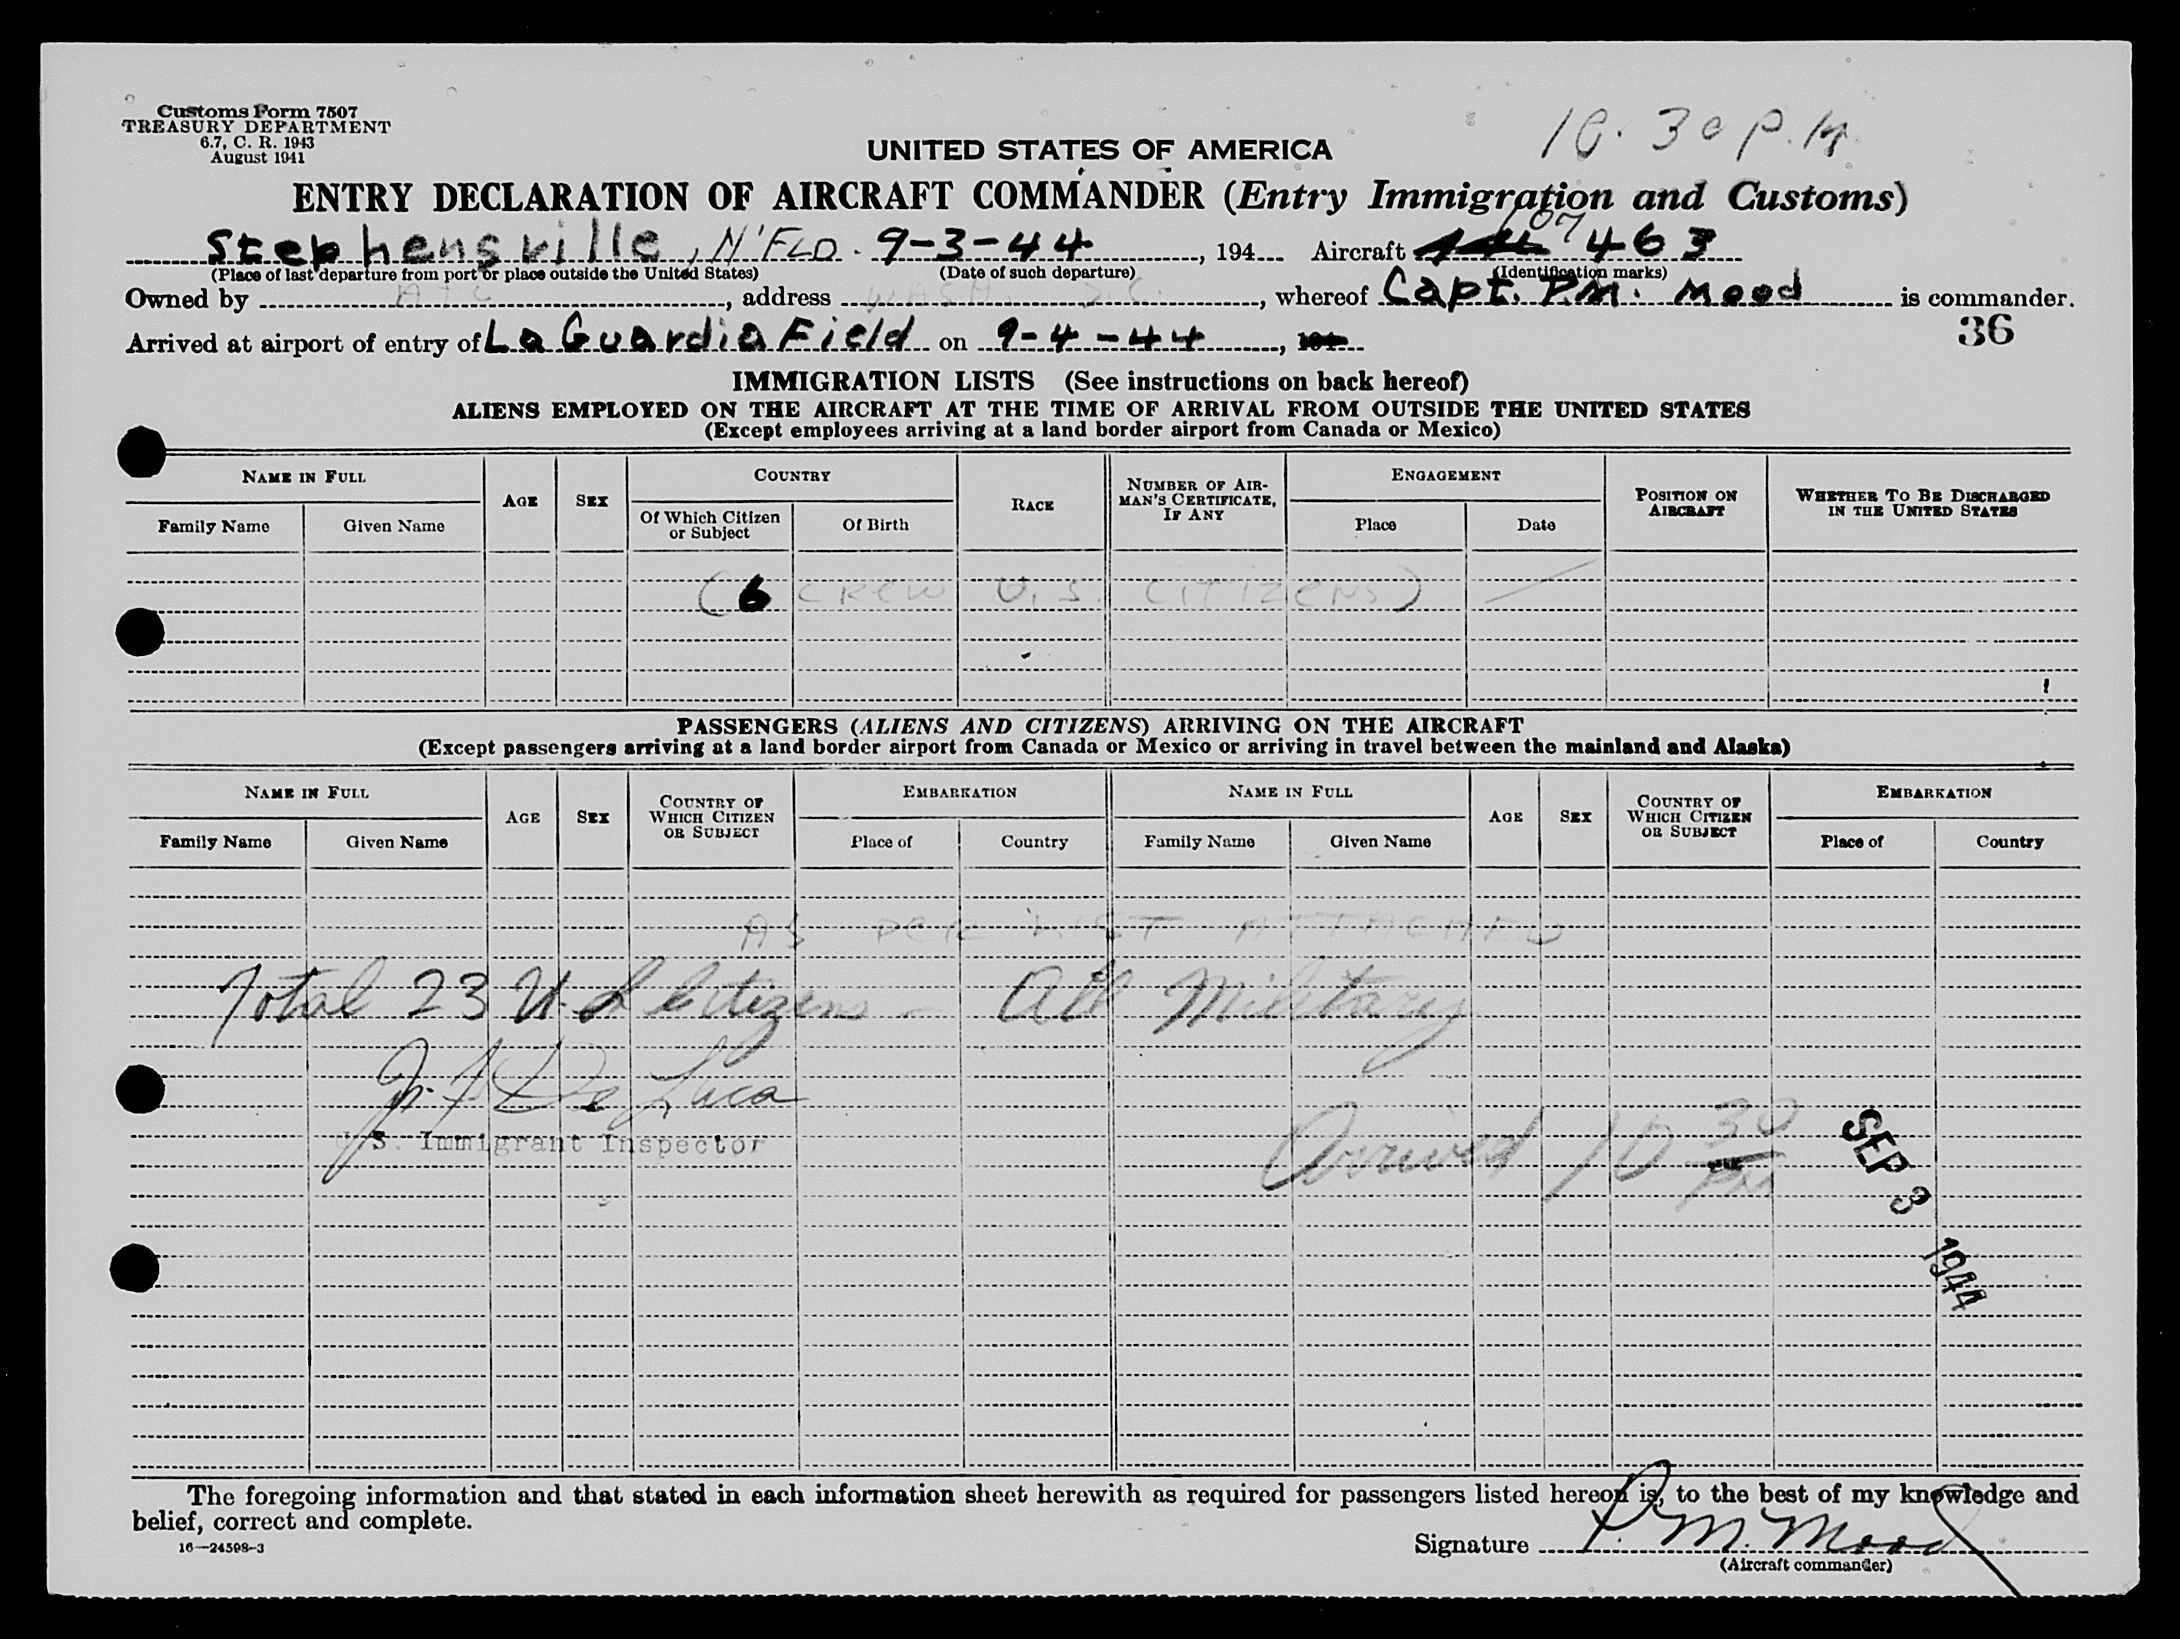 Customs Form 7507
TREASURY DEPARTMENT
6.7, C. R. 1943
August 1941
10.30 P.M.
UNITED STATES OF AMERICA
ENTRY DECLARATION OF AIRCRAFT COMMANDER (Entry Immigration and Customs)
Stephensville, N'FLD. 9-3-44, 194 Aircraft 107463
(Place of last departure from port or place outside the United States) (Date of such departure) (Identification marks)
Owned by ATC, address WASH. D.C., whereof Capt. P.M. Mood is commander.
Arrived at airport of entry of LaGuardia Field on 9-4-44,
36
IMMIGRATION LISTS (See instructions on back hereof)
ALIENS EMPLOYED ON THE AIRCRAFT AT THE TIME OF ARRIVAL FROM OUTSIDE THE UNITED STATES
(Except employees arriving at a land border airport from Canada or Mexico)
NAME IN FULL AGE SEX COUNTRY RACE NUMBER OF AIRMAN'S CERTIFICATE, IF ANY ENGAGEMENT POSITION ON AIRCRAFT WHETHER TO BE DISCHARGED IN THE UNITED STATES
Family Name Given Name Of Which Citizen or Subject Of Birth Place Date
(6 CREW U.S. CITIZENS)
PASSENGERS (ALIENS AND CITIZENS) ARRIVING ON THE AIRCRAFT
(Except passengers arriving at a land border airport from Canada or Mexico or arriving in travel between the mainland and Alaska)
NAME IN FULL AGE SEX COUNTRY OF WHICH CITIZEN OR SUBJECT EMBARKATION NAME IN FULL AGE SEX COUNTRY OF WHICH CITIZEN OR SUBJECT EMBARKATION
Family Name Given Name Place of Country Family Name Given Name Place of Country
AS PER LIST ATTACHED
Total 23 U.S Citizens - All Military
J. F. De Luca
U.S. Immigrant Inspector
Arrived 10 30 PM
SEP 3 1944
The foregoing information and that stated in each information sheet herewith as required for passengers listed hereon is, to the best of my knowledge and
belief, correct and complete.
16—24598-3
Signature P. M. Mood
(Aircraft commander)